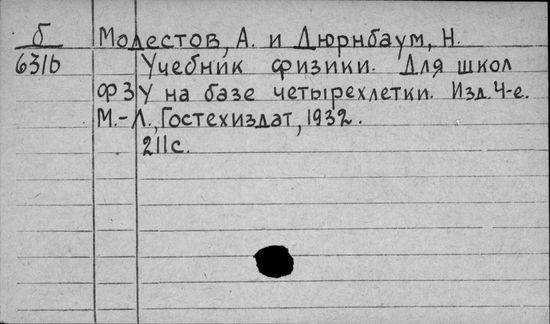 б Модестов, А. и Дюрнбаум, Н.
631б Учебник физики. Для школ
ФЗУ на базе четырехлетки. Изд. 4-е.
М.-Л., Гостехиздат, 1932.
211с.